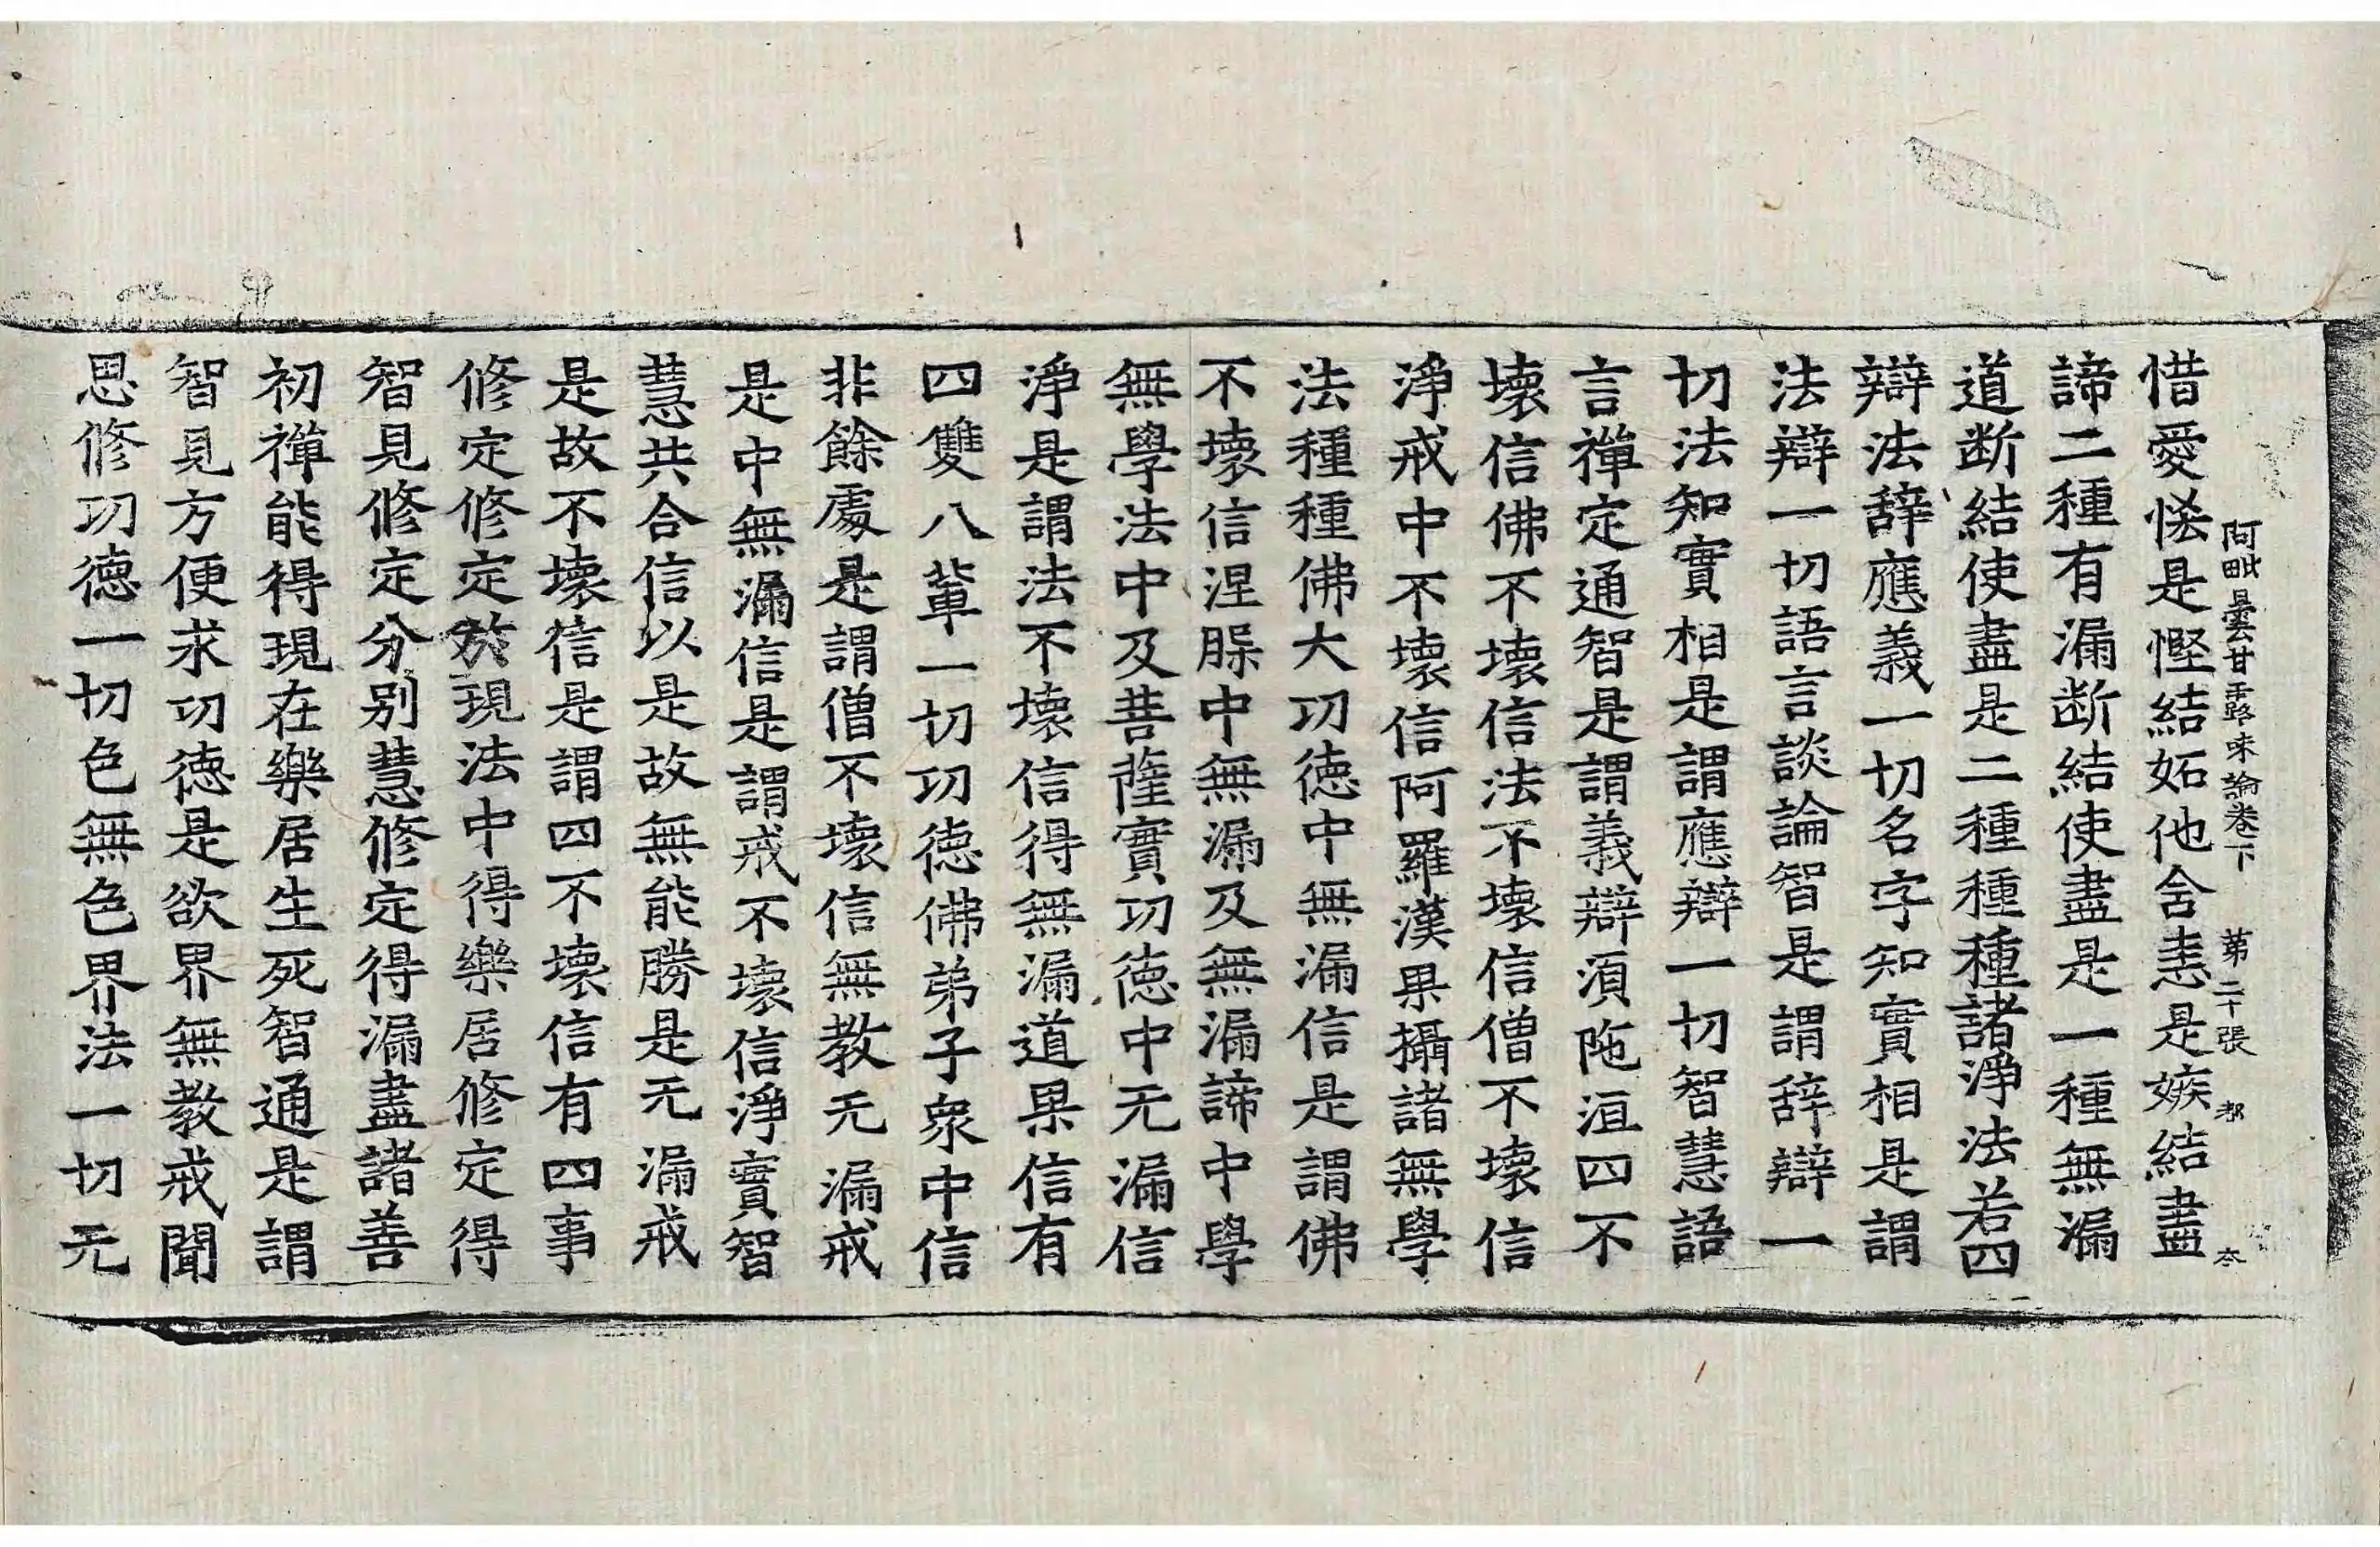 惜愛悋是慳結妬他舍恚是嫉結盡
阿毗曇甘露味論卷下 第二十張 都
諦二種有漏断結使盡是一種無漏
道断結使盡是二種種種諸淨法若四
辯法辞應義一切名字知實相是謂
法辯一切語言談論智是謂辞辯一
切法知實相是謂應辯一切智慧語
言禪定通智是謂義辯須陁洹四不
壊信佛不壊信法不壊信僧不壊信
淨戒中不壊信阿羅漢果攝諸無學
法種種佛大功徳中無漏信是謂佛
不壊信涅槃中無漏及無漏諦中學
無學法中及菩薩實功徳中无漏信
淨是謂法不壊信得無漏道果信有
四雙八輩一切功徳佛弟子衆中信
非餘處是謂僧不壊信無教无漏戒
是中無漏信是謂戒不壊信淨實智
慧共合信以是故無能勝是无漏戒
是故不壊信是謂四不壊信有四事
修定修定於現法中得樂居修定得
智見修定分別慧修定得漏盡諸善
初禪能得現在樂居生死智通是謂
智見方便求功徳是欲界無教戒聞
思修功徳一切色無色界法一切无